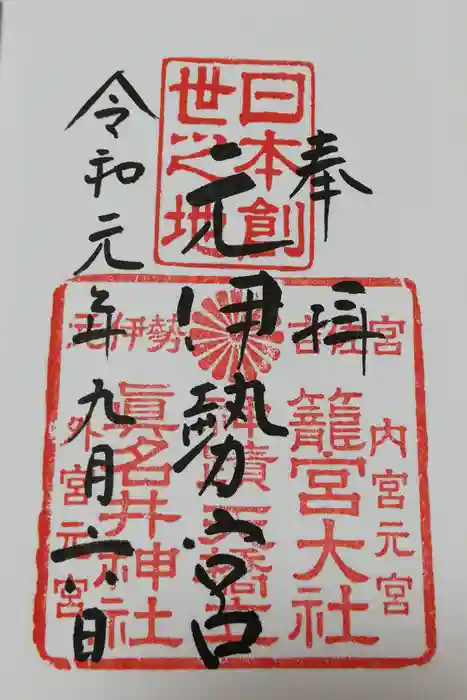 奉拝
日本創
世之地
元伊勢宮
令和元年九月六日
元伊勢 吉佐宮
内宮元宮
籠宮大社
神蹟天橋立
眞名井神社
外宮元宮